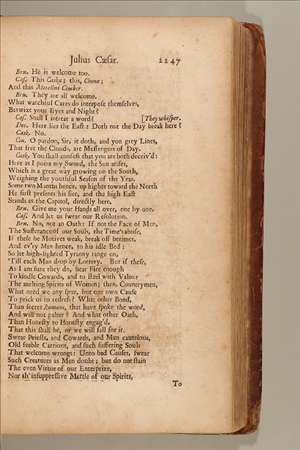 Julius Cæsar. 2247
Bru. He is welcome too.
Cas. This Caska; this, Cinna;
And this Metellus Cimber.
Bru. They are all welcome.
What watchful Cares do interpose themselves,
Betwixt your Eyes and Night?
Cas. Shall I intreat a word? [They whisper.
Dec. Here lies the East: Doth not the Day break here?
Cask. No.
Cin. O pardon, Sir, it doth, and yon grey Lines,
That fret the Clouds, are Messengers of Day.
Cask. You shall confess that you are both deceiv'd:
Here as I point my Sword, the Sun arises,
Which is a great way growing on the South,
Weighing the youthful Season of the Year.
Some two Months hence, up higher toward the North
He first presents his fire, and the high East
Stands as the Capitol, directly here.
Bru. Give me your Hands all over, one by one.
Cas. And let us swear our Resolution.
Bru. No, not an Oath: If not the Face of Men,
The Sufferance of our Souls, the Time's abuse,
If these be Motives weak, break off betimes,
And ev'ry Man hence, to his idle Bed:
So let high-sighted Tyranny range on,
'Till each Man drop by Lottery. But if these,
As I am sure they do, bear Fire enough
To kindle Cowards, and to steel with Valour
The melting Spirits of Women; then, Countrymen,
What need we any spur, but our own Cause
To prick us to redress? What other Bond,
Than secret Romans, that have spoke the word,
And will not palter? And what other Oath,
Than Honesty to Honesty engag'd,
That this shall be, or we will fall for it.
Swear Priests, and Cowards, and Men cautelous,
Old feeble Carrions, and such suffering Souls
That welcome wrongs: Unto bad Causes, swear
Such Creatures as Men doubt; but do not stain
The even Virtue of our Enterprize,
Nor th' insuppressive Mettle of our Spirits,
To